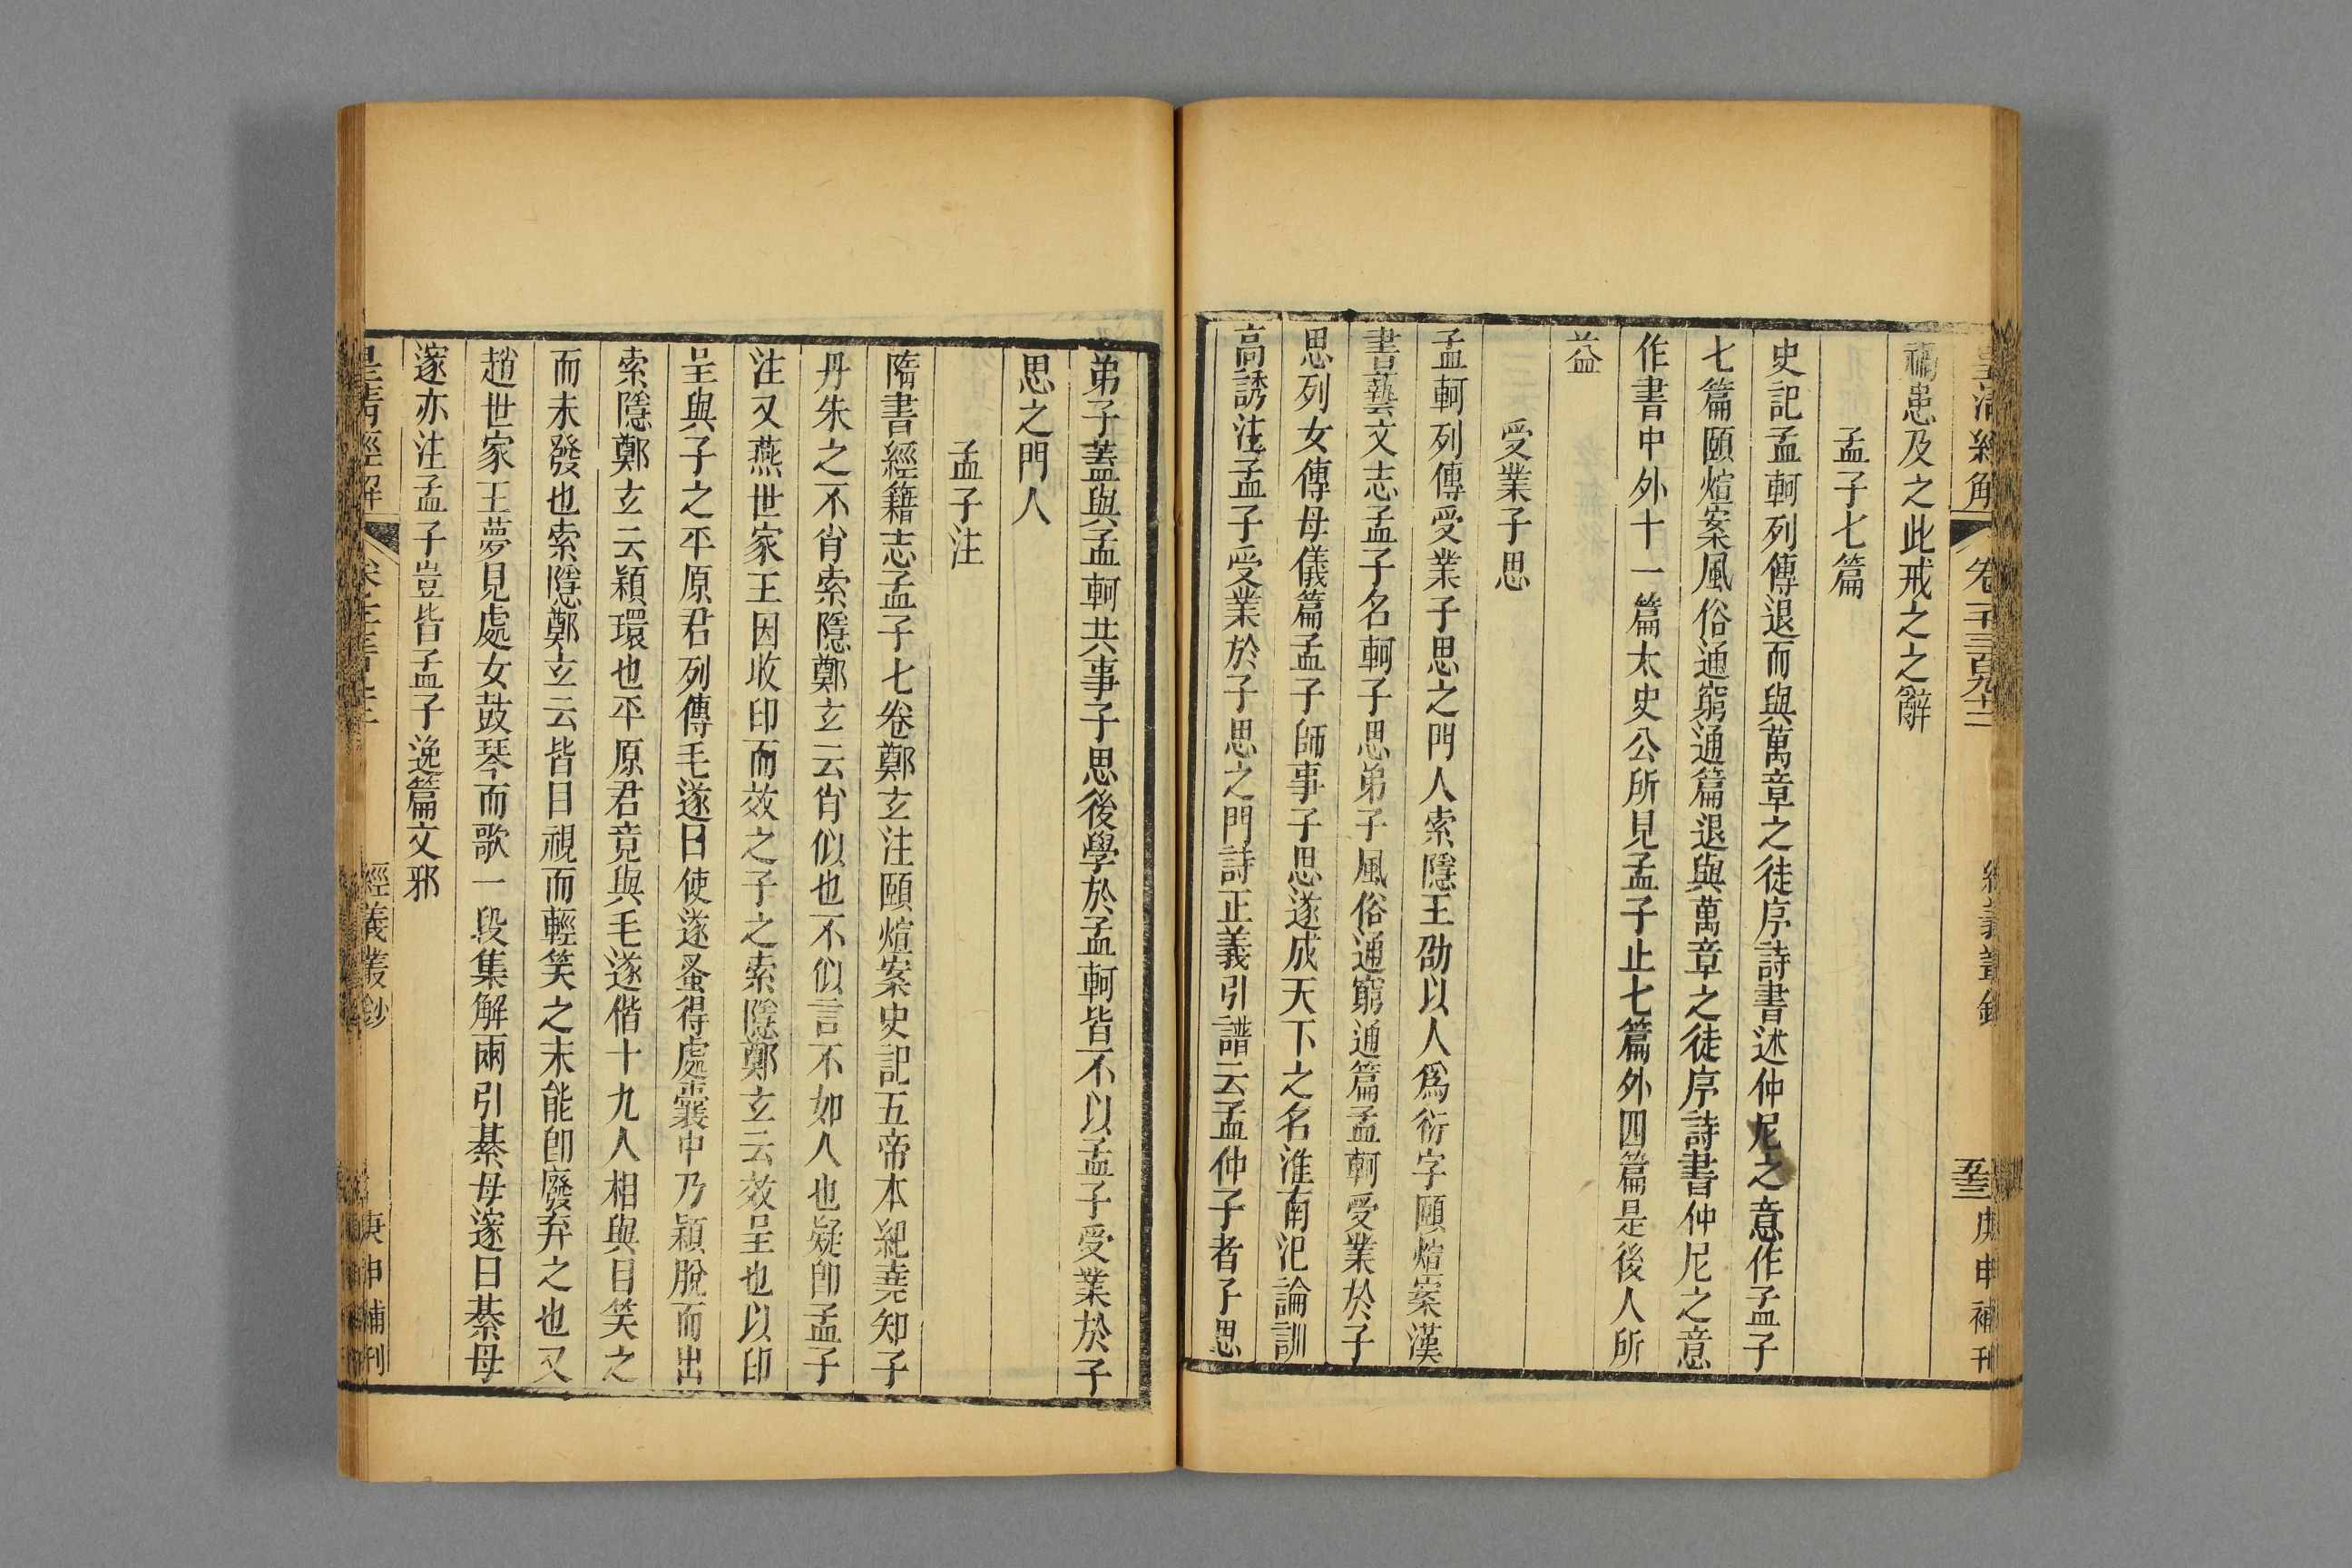 皇清經解 卷千三百九十二 經義叢鈔 五三 庚申補刊
禍患及之此戒之之辭
孟子七篇
史記孟軻列傳退而與萬章之徒序詩書述仲尼之意作孟子
七篇頤煊案風俗通窮通篇退與萬章之徒序詩書仲尼之意
作書中外十一篇太史公所見孟子止七篇外四篇是後人所
益
受業子思
孟軻列傳受業子思之門人索隱王劭以人爲衍字頤煊案漢
書藝文志孟子名軻子思弟子風俗通窮通篇孟軻受業於子
思列女傳母儀篇孟子師事子思遂成天下之名淮南氾論訓
高誘注孟子受業於子思之門詩正義引譜云孟仲子者子思
弟子蓋與孟軻共事子思後學於孟軻皆不以孟子受業於子
思之門人
孟子注
隋書經籍志孟子七卷鄭玄注頤煊案史記五帝本紀堯知子
丹朱之不肖索隱鄭玄云肖似也不似言不如人也疑卽孟子
注又燕世家王因收印而效之子之索隱鄭玄云效呈也以印
呈與子之平原君列傳毛遂曰使遂蚤得處囊中乃穎脫而出
索隱鄭玄云穎環也平原君竟與毛遂偕十九人相與目笑之
而未發也索隱鄭玄云皆目視而輕笑之未能卽廢弃之也又
趙世家王夢見處女鼓琴而歌一段集解兩引綦母邃曰綦母
邃亦注孟子豈皆孟子逸篇文邪
皇清經解 經義叢鈔 庚申補刊